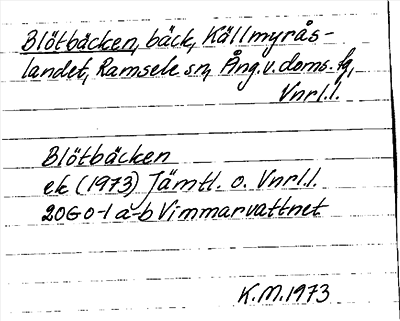 Blötbäcken, bäck, Källmyrås-
landet, Ramsele sn, Ång. v. doms. fg,
Vnrl.l.
Blötbäcken
ek (1973) Jämtl. o. Vnrl.l.
20G 0-1 a-b Vimmarvattnet
K.M. 1973